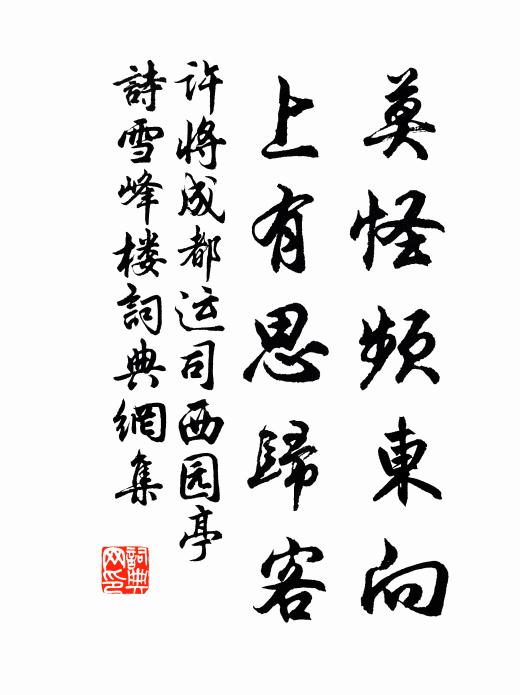 莫怪頻東向
上有思歸客
许將成都运司西园亭
詩雪峰楼詞典網集
詞典网印